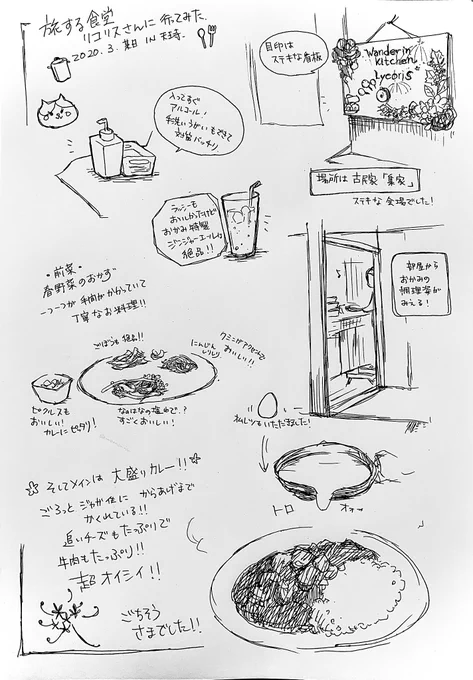 旅する食堂
リコリスさんに行ってみた.
2020.3.某日 IN 天王寺.
目印は
ステキな看板
Wanderin
Kitchen
Lycoris
入ってすぐ
アルコール!
手洗いうがいもできて
対策バッチリ
場所は古民家「巣家」
ステキな会場でした!
ラッシーも
おいしかったけど
おかみ特製
ジンジャーエールが
絶品!!
部屋から
おかみの
調理姿が
みえる!
・前菜・
春野菜のおかず
一つ一つが手間がかかっていて
丁寧なお料理!!
ごぼうも絶品!!
にんじん
しりしり
クミンがアクセントで
おいしい!!
ピクルスも
おいしい!
カレーにピッタリ!
なのはなの塩もみで.?
すごくおいしい!
私もいただきました!
トロ
オォッ
そしてメインは 大盛りカレー!!
ごろっとジャガ位に からあげまで
かくれている!!
追いチーズもたっぷりで
牛肉もたっぷり!!
超オイシイ!!
ごちそう
さまでした!!